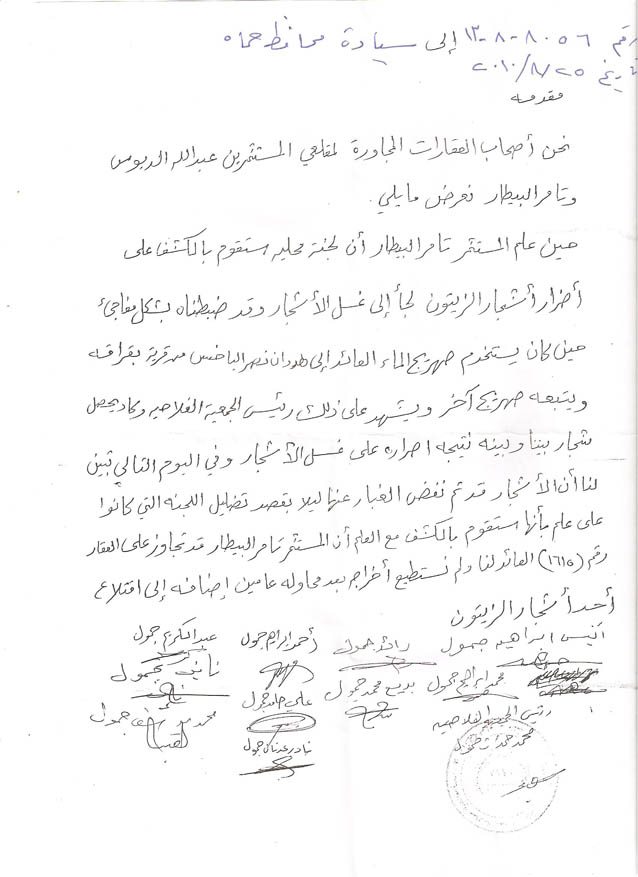 رقم ٨٠٥٦-٨-١٣ إلى سيادة محافظ حماه
تاريخ ٢٠١٠/٨/٢٥
مقدمه
نحن أصحاب العقارات المجاورة لمقلعي المستثمرين عبدالله الدبوس
وتامر البيطار نعرض مايلي.
حين علم المستثمر تامر البيطار أن لجنة محليه ستقوم بالكشف على
أضرار أشجار الزيتون لجأ إلى غسل الأشجار وقد ضبطناه بشكل مفاجئ
حين كان يستخدم صهريج الماء العائد إلى نصر من قرية بقراقه
ويتبعه صهريج آخر ويشهد على ذلك رئيس الجمعية الفلاحيه وكاد يحصل
شجار بيننا وبينه نتيجه اصراره على غسل الأشجار وفي اليوم التالي تبين
لنا أن الأشجار قد تم نفض الغبار عنها ليلا بقصد تضليل اللجنه التي كانوا
على علم بأنها ستقوم بالكشف مع العلم أن المستثمر تامر البيطار قد تجاوز على العقار
رقم (١٦١٥) العائد لنا ولم نستطيع أخراجه بعد محاوله عامين إضافه إلى اقتلاع
أحد أشجار الزيتون
أنيس ابراهيم جمول رائد جمول أحمد ابراهيم جمول عبد الكريم جمول
محمد ابراهيم جمول بديع محمد جمول علي حامد جمول نائف جمول
رئيس الجمعية الفلاحيه نادر عدنان جمول محمد جمول
محمد جمول